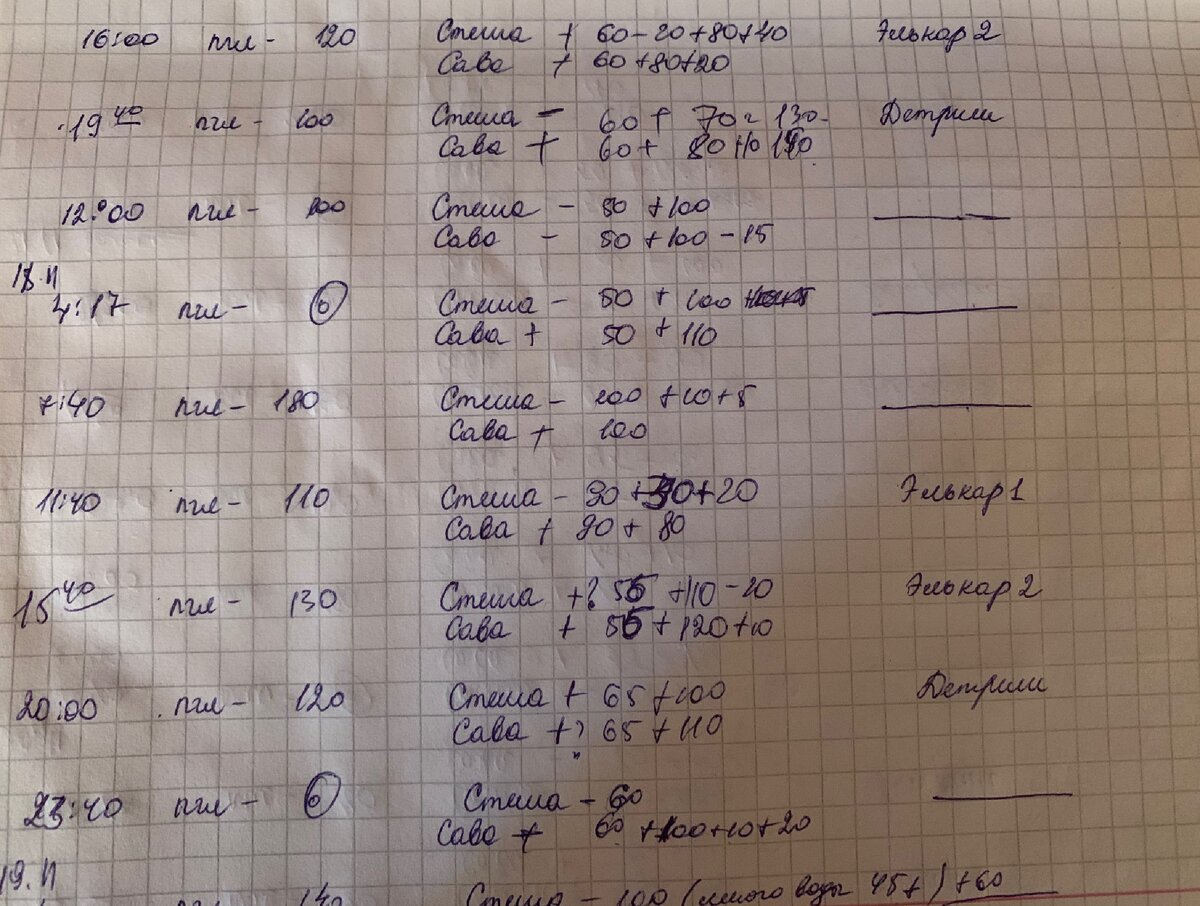 16:00 пгл - 120 Стеша + 60-20+80+40 Элькар 2
Сава + 60+80+20
19 40 пгл - 100 Стеша - 60 + 70 = 130 Детрим
Сава + 60 + 80 +10
12:00 пгл - 100 Стеша - 50 +100
Сава - 50 +100 - 15
18.11
4:17 пгл - 6 Стеша - 50 + 100
Сава + 50 + 110
7:40 пгл - 180 Стеша - 100 +10+5
Сава + 100
11:40 пгл - 110 Стеша - 90 + +20 Элькар 1
Сава + 90 + 80
15 40 пгл - 130 Стеша +? 55 +110-20 Элькар 2
Сава + 55 +120+10
20:00 пгл - 120 Стеша + 65 +100 Детрим
Сава +? 65 +110
23:40 пгл - 6 Стеша - 60
Сава + 60 +100+10+20
19.11
пгл 140 Стеша - 100 (много воды 45+) +60